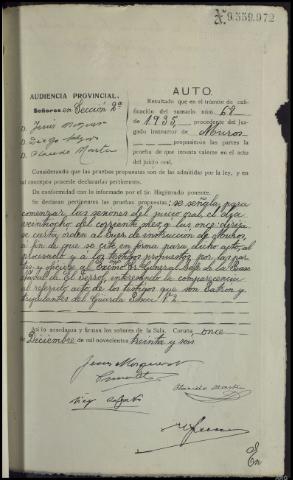 9.559.972
AUDIENCIA PROVINCIAL.
Señores en Sección 2ª
D. Jesús
D. Diego
D. Claudio
AUTO.
Resultado que en el trámite de cali-
ficación del sumario núm. 69
de 1935, procedente del Juz-
gado Instructor de Muros
propusieron las partes la
prueba de que intenta valerse en el acto
del juicio oral.
Considerando que las pruebas propuestas son de las admitidas por la ley, y en
tal concepto procede declararlas pertinentes.
De conformidad con lo informado por el Sr. Magistrado ponente.
Se declaran pertinentes las pruebas propuestas: se señala para
comenzar las sesiones del juicio oral el día
veintiocho del corriente mes a las once
carta orden al Juez de instrucción de Muros
a fin de que se cite en forma para dicho acto al
procesado y a los testigos propuestos por las par-
tes y oficio al Excmo. Sr. General Jefe de la Base
naval de El Ferrol, interesando la comparecencia
al referido acto de los testigos que son patron y
tripulantes del Guarda
Así lo acordaron y firman los señores de la Sala. Coruña once
Diciembre de mil novecientos treinta y seis